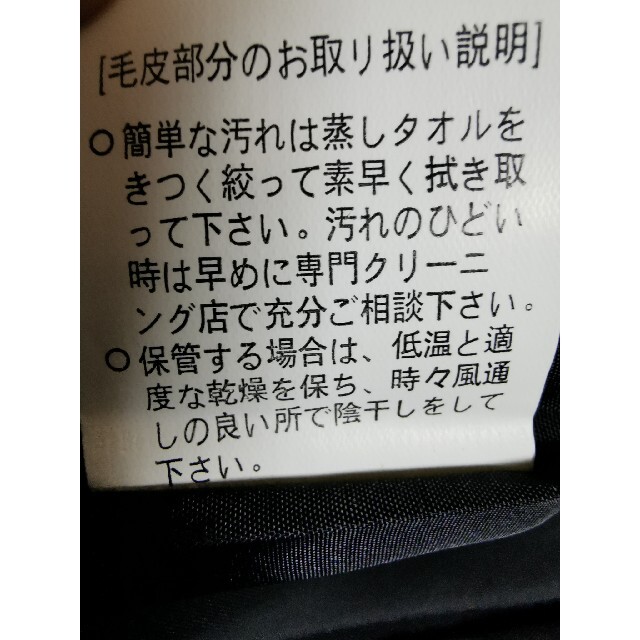 [毛皮部分のお取り扱い説明]
○簡単な汚れは蒸しタオルを
きつく絞って素早く拭き取
って下さい。汚れのひどい
時は早めに専門クリーニ
ング店で充分ご相談下さい。
○保管する場合は、低温と適
度な乾燥を保ち、時々風通
しの良い所で陰干しをして
下さい。